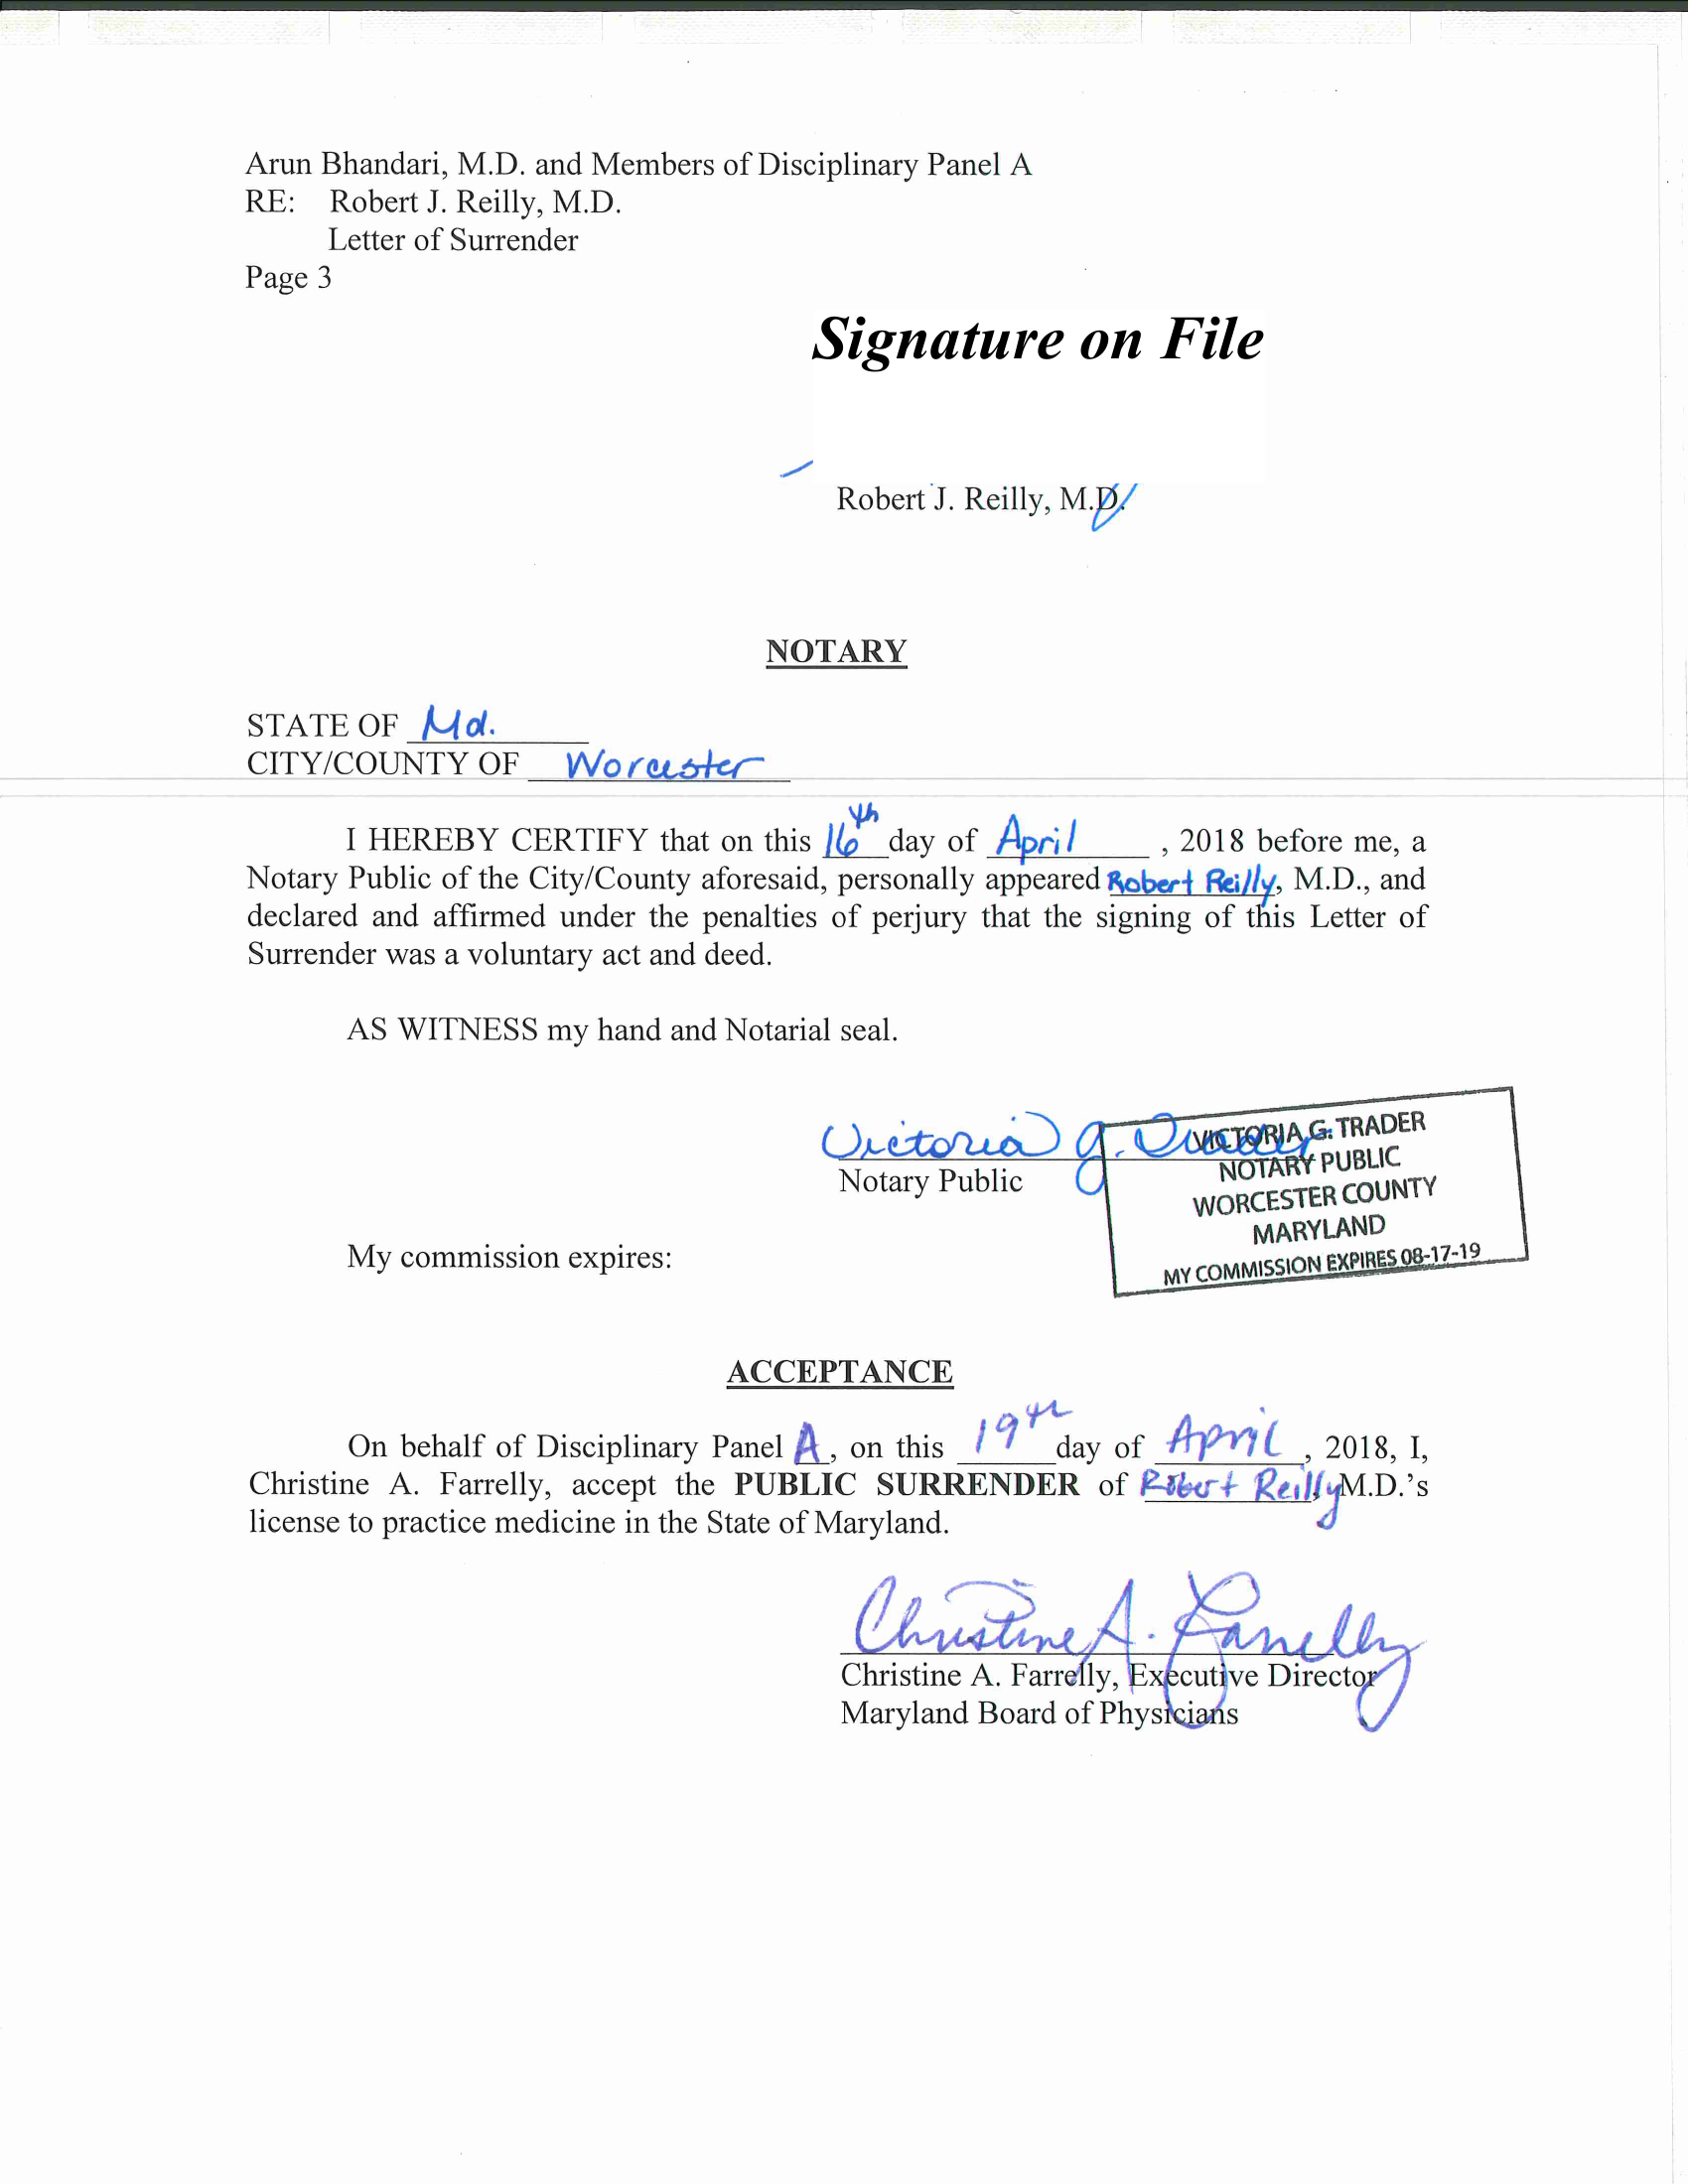 Arun Bhandari, M.D. and Members of Disciplinary Panel A
RE: Robert J. Reilly, M.D.
Letter of Surrender
Page 3
Signature on File
Robert J. Reilly, M.D.
NOTARY
STATE OF Md.
CITY/COUNTY OF Worcester
I HEREBY CERTIFY that on this 16th day of April , 2018 before me, a
Notary Public of the City/County aforesaid, personally appeared Robert Reilly, M.D., and
declared and affirmed under the penalties of perjury that the signing of this Letter of
Surrender was a voluntary act and deed.
AS WITNESS my hand and Notarial seal.
Victoria G. Trader
Notary Public
VICTORIA G. TRADER
NOTARY PUBLIC
WORCESTER COUNTY
MARYLAND
MY COMMISSION EXPIRES 08-17-19
My commission expires:
ACCEPTANCE
On behalf of Disciplinary Panel A, on this 19th day of April, 2018, I,
Christine A. Farrelly, accept the PUBLIC SURRENDER of Robert Reilly, M.D.'s
license to practice medicine in the State of Maryland.
Christine A. Farrelly
Christine A. Farrelly, Executive Director
Maryland Board of Physicians